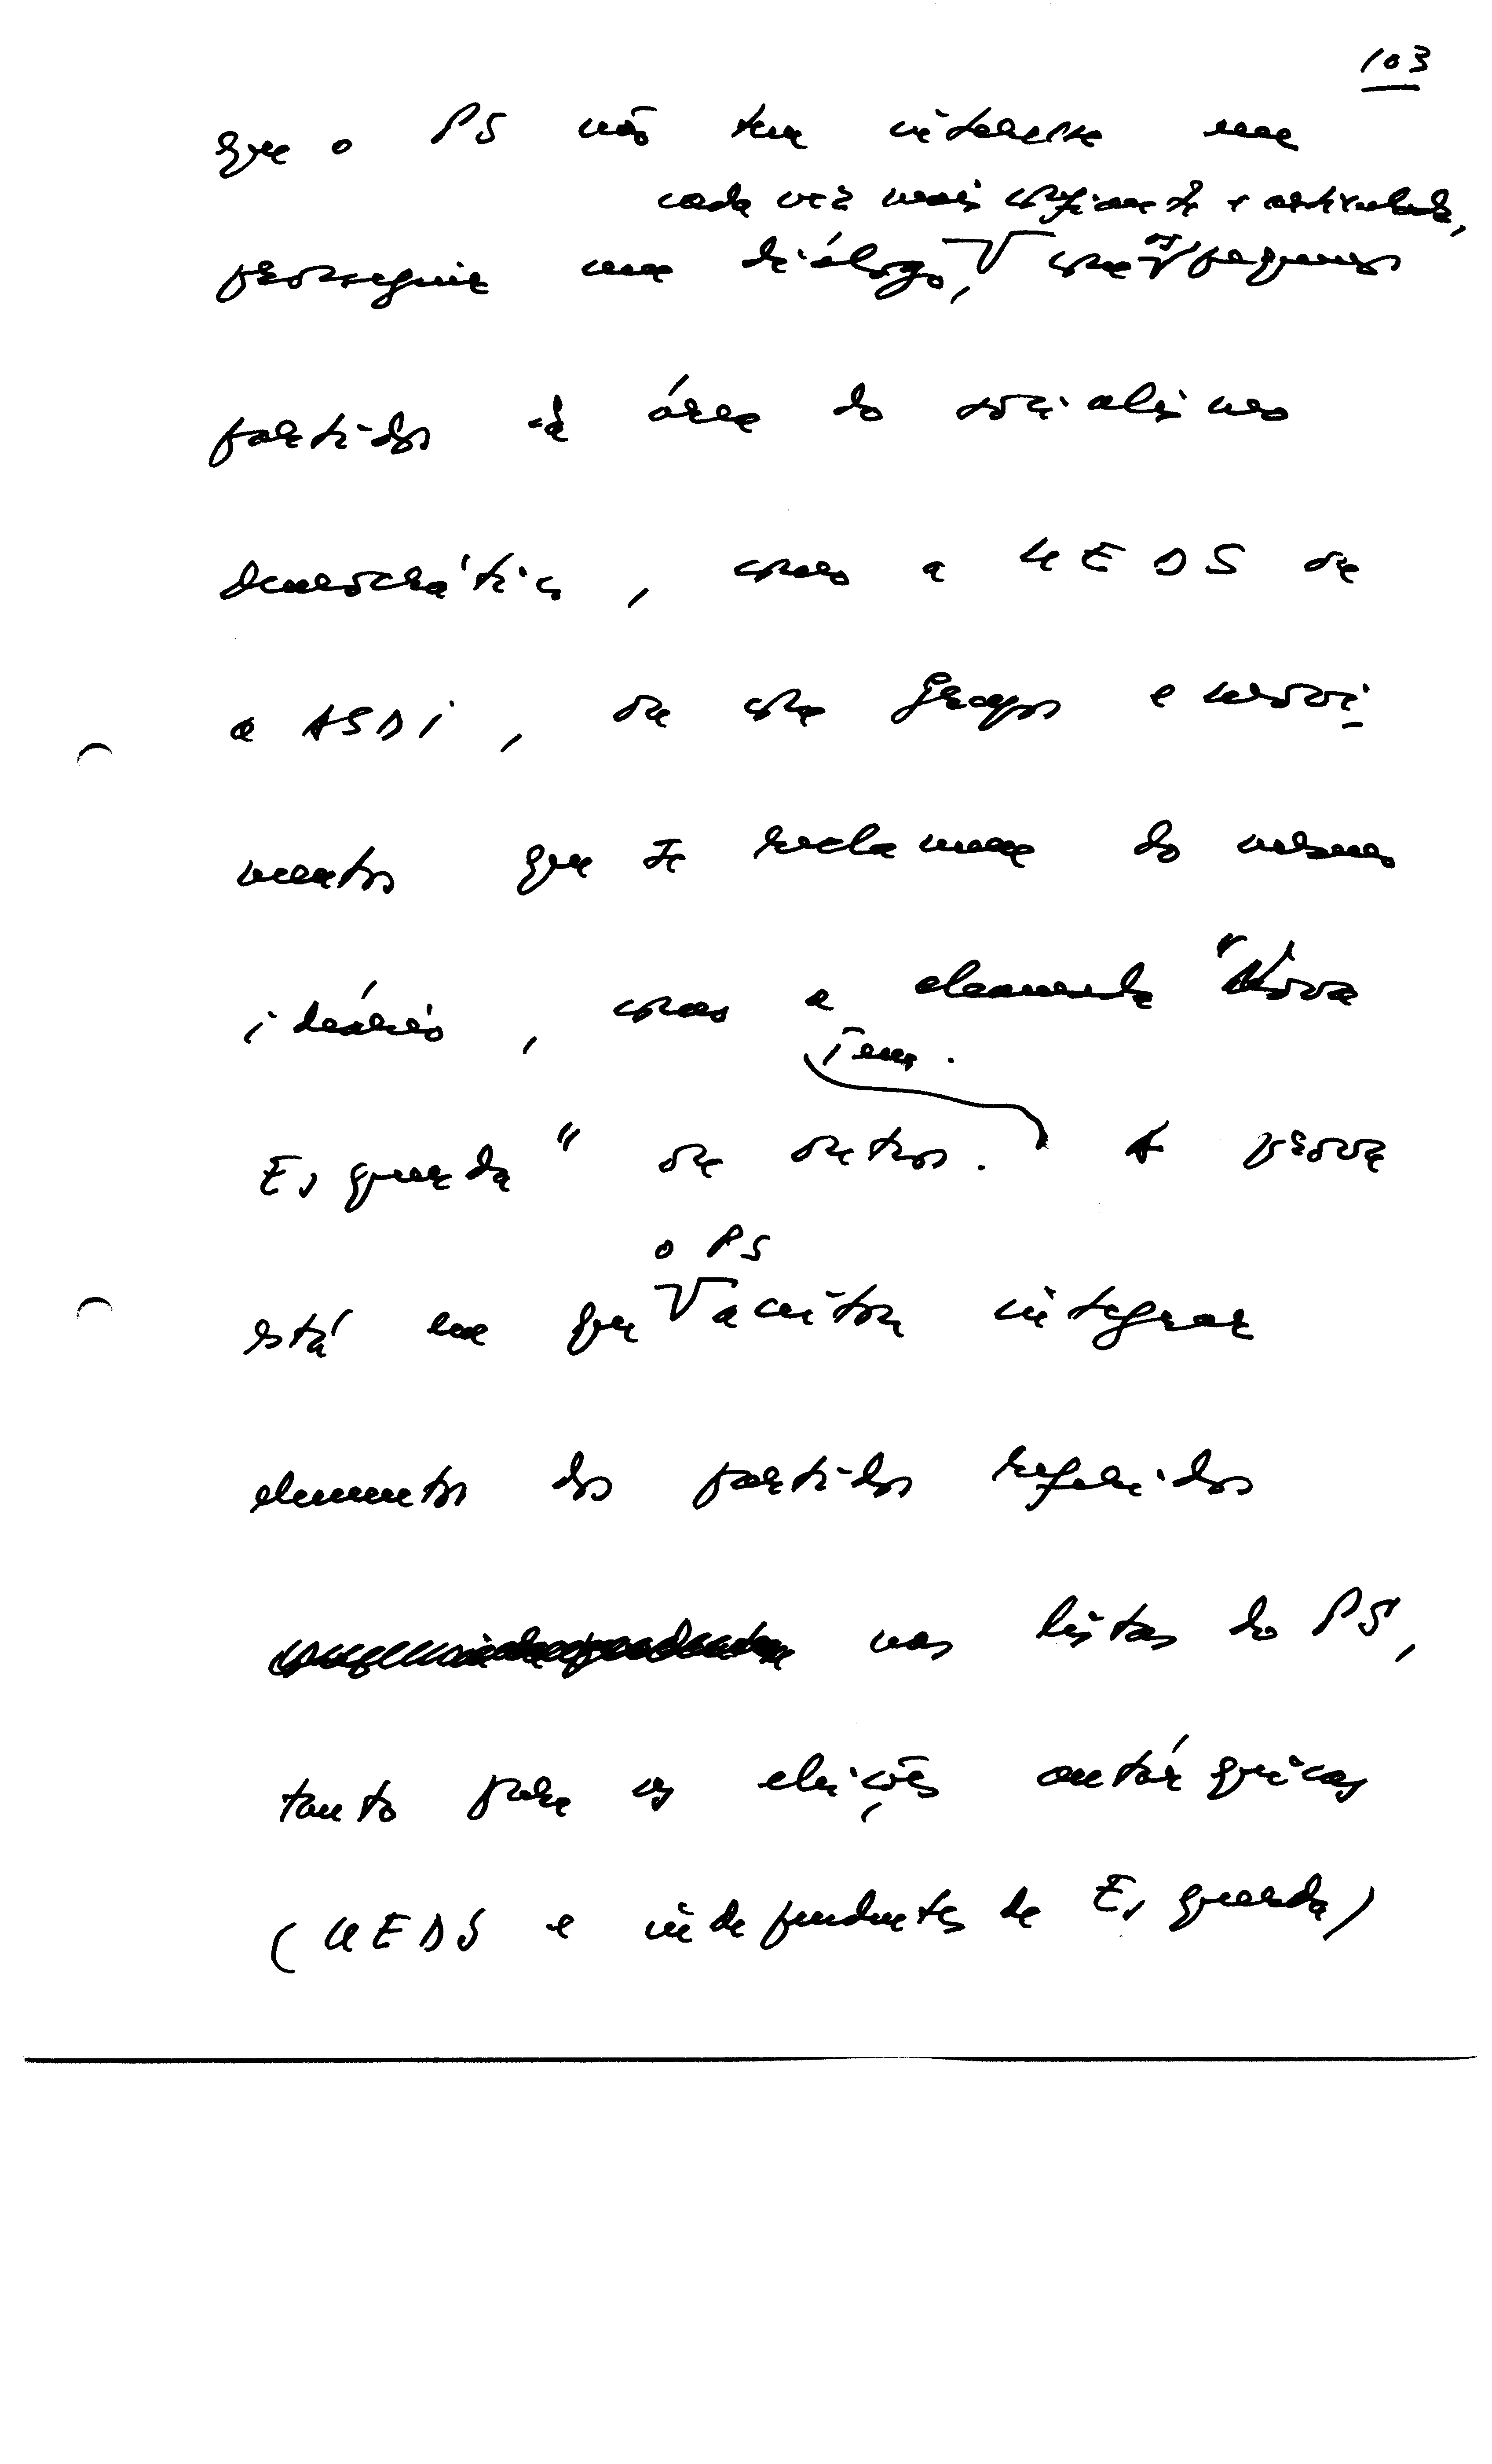 103
que o PS não tem interesse em
cada vez mais confiante e articulado,
prosseguir um diálogo, com os pequenos
partidos da área do socialismo
democrático, como a UEDS ou
a ASDI, ou com grupos e movi
mentos que se reclamem do mesmo
ideário, como a chamada "Nova
Tem.
Esquerda" ou outros. A prova
o PS
está em que aceitou integrar
elementos dos partidos referidos
nas listas do PS,
tanto para as eleições autárquicas
(UEDS e independentes de Esquerda)